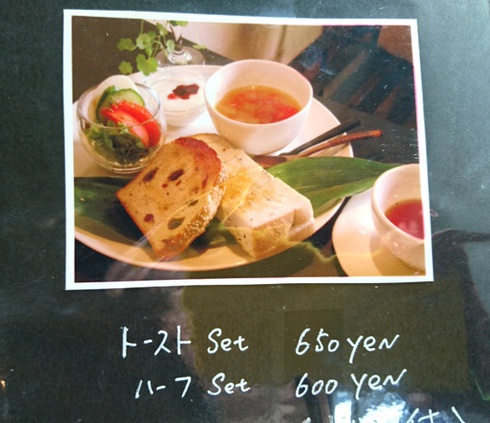 トースト Set 650 YEN
ハーフ Set 600 YEN